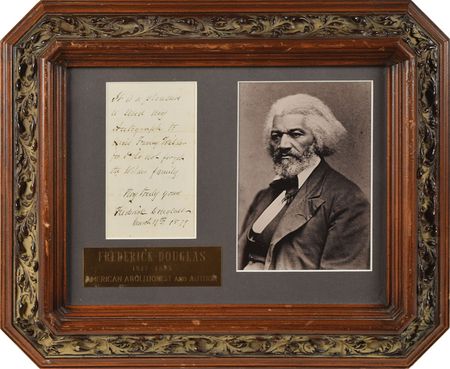 It is a pleasure
to send my
Autograph to
Miss Fanny
for I do not forget
the family.
Very truly yours
Frederick Douglass
March 1879
FREDERICK DOUGLAS
1817 - 1895
AMERICAN ABOLITIONIST AND AUTHOR